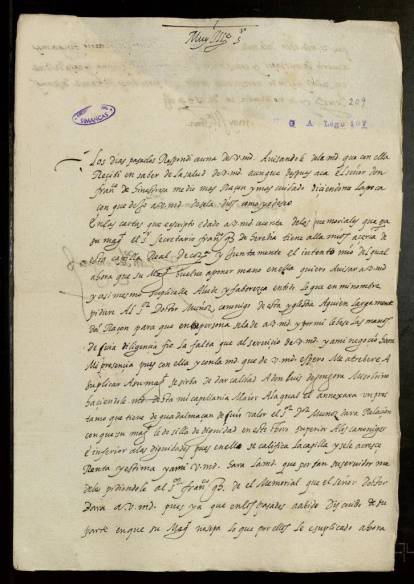 Muy Ill.e S.r
SIMANCAS
209
G A Lego 207
Los dias pasados Respondi a una de v. md. Avisandole de la md. que con ella
Reçibi en saber de la salud de v. md. aunque despues aca el señor don
fran.co de me dio mas Raçon y mas cuidado diciendome la poca
con que deso a v. md. dios
En las cartas que escripto e dado a v. md. cuenta de los memoriales que
su mag.d el s.r secretario fran.co de heredia tiene alla mos açerca de
esta capilla Real de y juntamente el intento mio del qual
ahora que su Mag.d buelve a poner mano en ella quiero Avisar a v. md.
y asi mesmo suplicalle Aiude y faborezca en todo lo que en mi nombre
pidiere Al s.r Doctor Muñoz canonigo de esta yglesia A quien largamente
doi Raçon para que en persona se la de a v. md. y por mi le bese las manos
de cuia diligencia fio la falta que al servicio de v. md. y a mi negocio hara
Mi presencia pues con ella y con la md. que de v. md. espero Me atrebere A
suplicar A su mag.d se sirva de dar calidad A don luis de gongora Mi sobrino
haciendole md. de mi capellania Maior A la qual el annexara un pres
tamo que tiene de guadalmacan de cuio valor el s.r D.or Munoz dara Relasion
con que su mag.d le de silla de dignidad en este choro superior A los canonigos
e inferior a las dignidades pues en ello se califica la capilla y se le acresce
Renta y estima y a mi v. md. hara la md. que por tan su servidor me
debe pidiendole al s.r fran.co g.z de el Memorial que el señor Doctor
dara a v. md. pues ya que en los pasados a abido Discuido de su
parte en que su Mag.d no sepa lo que por ellos le e suplicado ahora